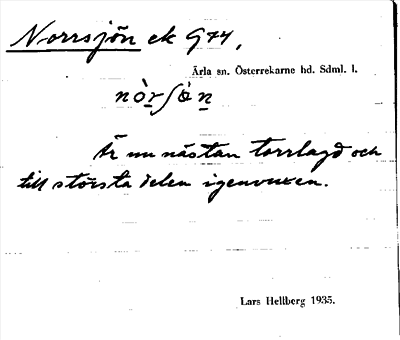 Norrsjön ek G44,
Ärla sn. Österrekarne hd. Sdml. l.
Är nu nästan torrlagd och
till största delen igenvuxen.
Lars Hellberg 1935.